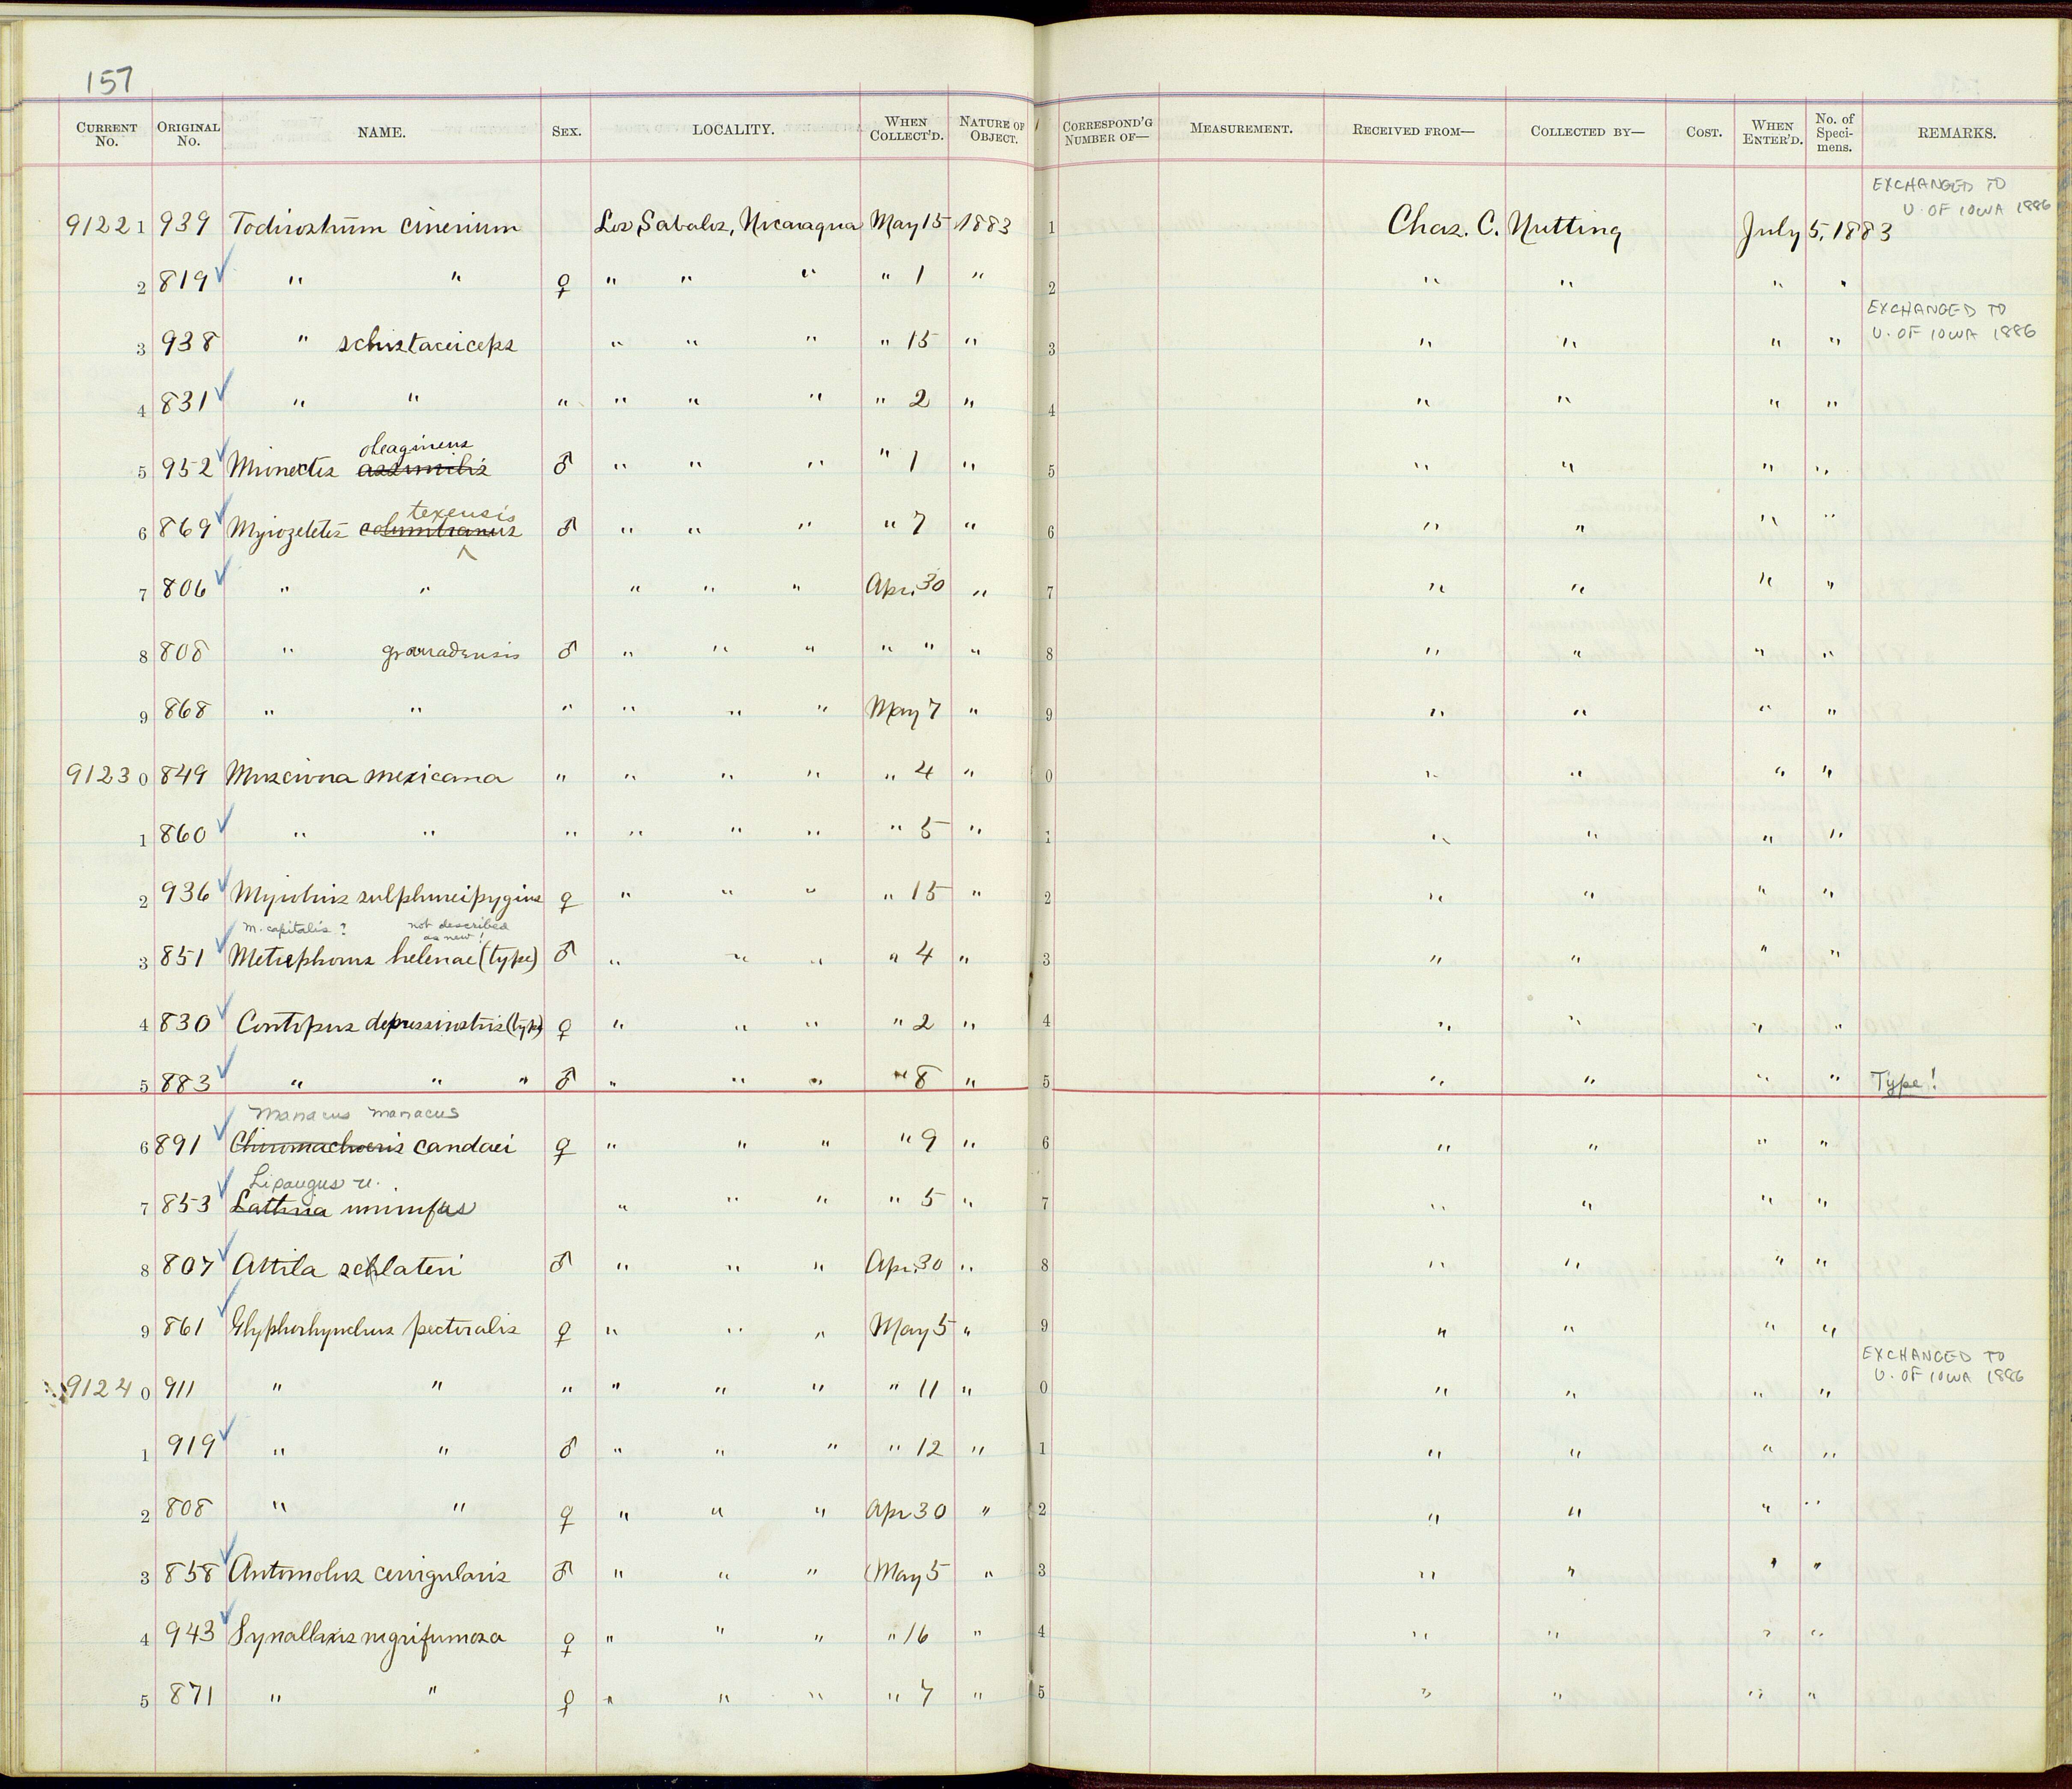 157
CURRENT No. ORIGINAL No. NAME. SEX. LOCALITY. WHEN COLLECT'D. NATURE OF OBJECT. CORRESPOND'G NUMBER OF— MEASUREMENT. RECEIVED FROM— COLLECTED BY— COST. WHEN ENTER'D. No. of Speci-mens. REMARKS.
EXCHANGED TO
U. OF IOWA 1886
91221 939 Todirostrum cinerium Los Sabalos, Nicaragua May 15 1883 1 Chas. C. Nutting July 5, 1883
2 819 " " ♀ " " " " 1 " 2 " " " "
EXCHANGED TO
U. OF IOWA 1886
3 938 " schistaceiceps " " " " 15 " 3 " " " "
4 831 " " " " " " " 2 " 4 " " " "
oleagineus
5 952 Mionectes assimilis ♂ " " " " 1 " 5 " " " "
texensis
6 869 Myiozetetes columbianus ♂ " " " " 7 " 6 " " " "
7 806 " " " " " Apr. 30 " 7 " " " "
8 808 " granadensis ♂ " " " " " " 8 " " " "
9 868 " " " " " " May 7 " 9 " " " "
91230 849 Muscivora mexicana " " " " " 4 " 0 " " " "
1 860 " " " " " " " 5 " 1 " " " "
2 936 Myiobius sulphureipygius ♀ " " " " 15 " 2 " " " "
M. capitalis ? not described
as new !
3 851 Metriphorus helenae (type) ♂ " " " " 4 " 3 " " " "
4 830 Contopus depressirostris (type) ♀ " " " " 2 " 4 " " " "
5 883 " " " ♂ " " " " 8 " 5 " " " " Type !
Manacus manacus
6 891 Chiromachaeris candaei ♀ " " " " 9 " 6 " " " "
Lipaugus u.
7 853 Lathria unirufus " " " " 5 " 7 " " " "
8 807 Attila sclateri ♂ " " " Apr. 30 " 8 " " " "
9 861 Glyphorhynchus pectoralis ♀ " " " May 5 " 9 " " " "
EXCHANGED TO
U. OF IOWA 1886
91240 911 " " " " " " " 11 " 0 " " " "
1 919 " " ♂ " " " " 12 " 1 " " " "
2 808 " " ♀ " " " Apr 30 " 2 " " " "
3 858 Automolus cervigularis ♂ " " " May 5 " 3 " " " "
4 943 Synallaxis nigrifumosa ♀ " " " " 16 " 4 " " " "
5 871 " " ♀ " " " " 7 " 5 " " " "